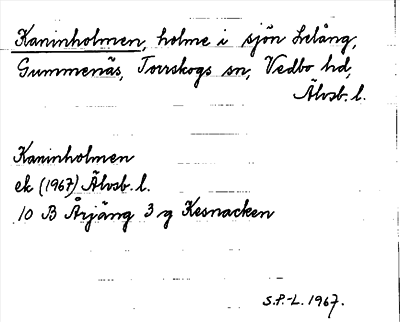 Kaninholmen, holme i sjön Lelång,
Gummenäs, Torrskogs sn, Vedbo hd,
Älvsb. l.
Kaninholmen
ek (1967) Älvsb. l.
10 B Årjäng 3 g Kesnacken
S.P.-L. 1967.